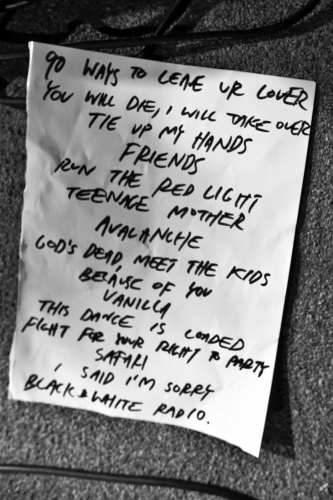 90 WAYS TO LEAVE UR LOVER
YOU WILL DIE, I WILL TAKE OVER
TIE UP MY HANDS
FRIENDS
RUN THE RED LIGHT
TEENAGE MOTHER
AVALANCHE
GOD'S DEAD, MEET THE KIDS
BECAUSE OF YOU
VANILLA
THIS DANCE IS LOADED
FIGHT FOR YOUR RIGHT TO PARTY
SAFARI
I SAID I'M SORRY
BLACK & WHITE RADIO.